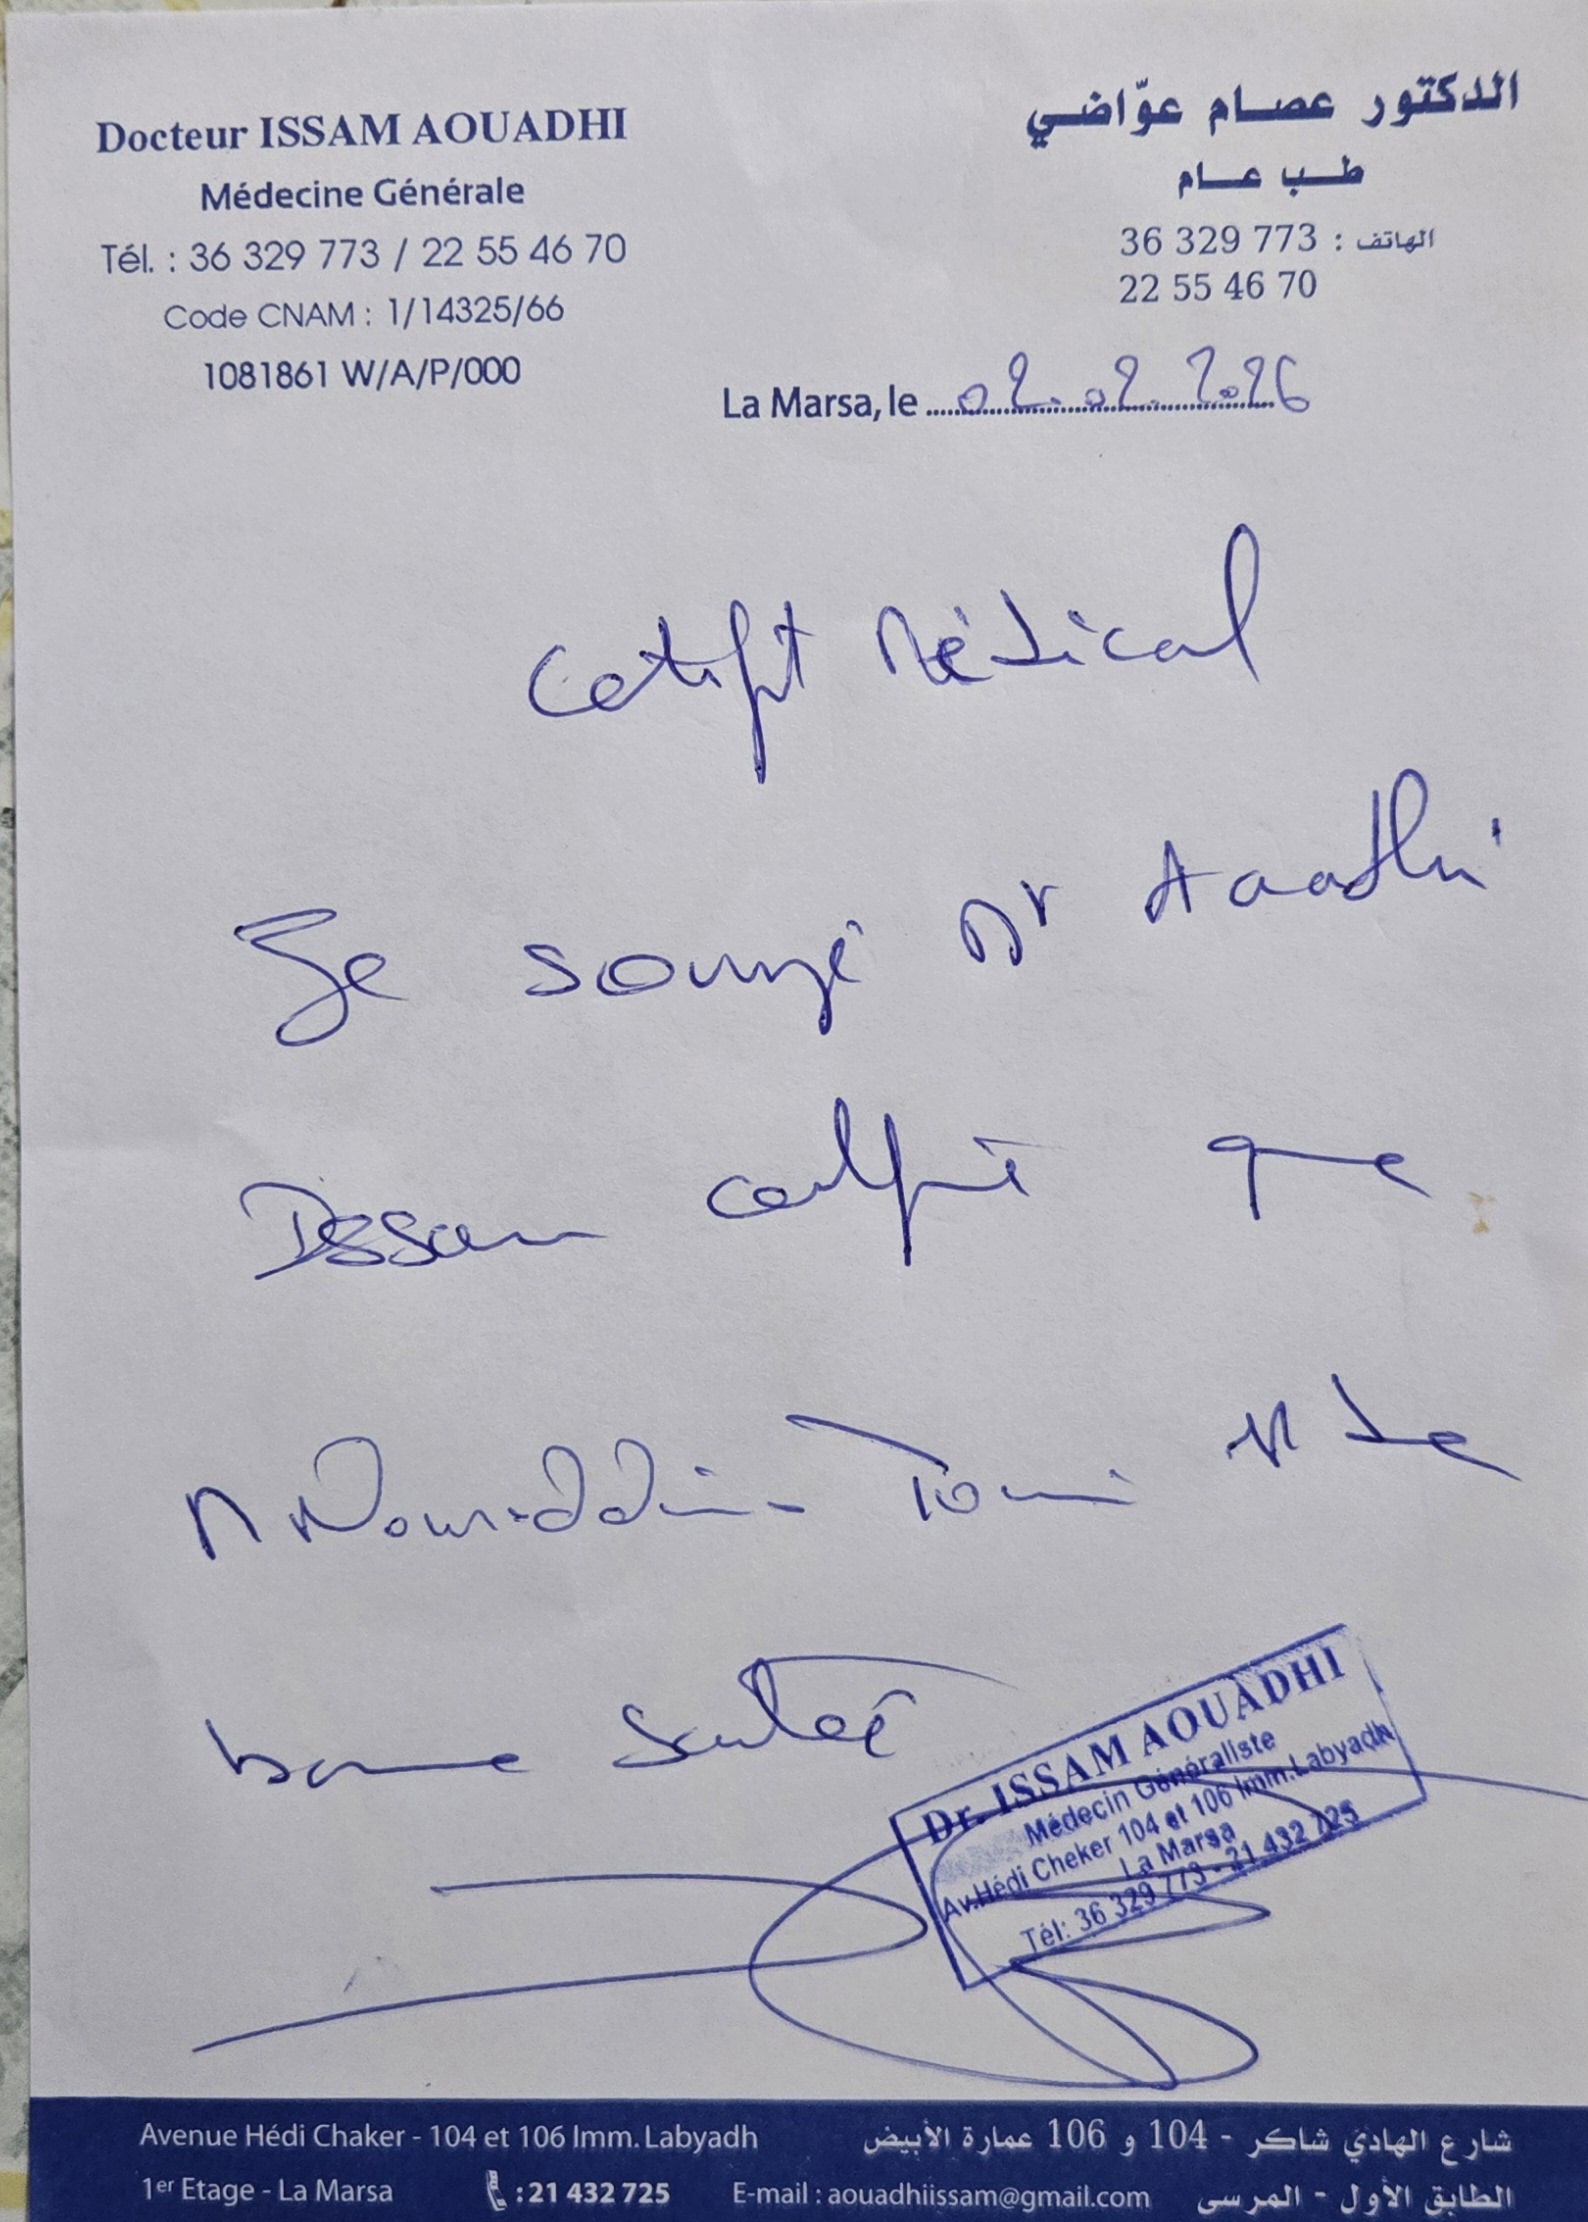 Docteur ISSAM AOUADHI
Médecine Générale
Tél. : 36 329 773 / 22 55 46 70
Code CNAM : 1/14325/66
1081861 W/A/P/000
الدكتور عصام عوّاضي
طب عام
الهاتف : 36 329 773
22 55 46 70
La Marsa, le 02.02.2026
Certificat Médical
Je soussigné Dr Aouadhi
Issam certifie que
M Noureddine Tomi est de
bonne santé
Dr. ISSAM AOUADHI
Médecin Généraliste
Av.Hédi Cheker 104 et 106 Imm.Labyadh
La Marsa
Tél: 36 329 773 - 21 432 725
Avenue Hédi Chaker - 104 et 106 Imm. Labyadh
1er Etage - La Marsa
: 21 432 725
E-mail : aouadhiissam@gmail.com
شارع الهادي شاكر - 104 و 106 عمارة الأبيض
الطابق الأول - المرسى